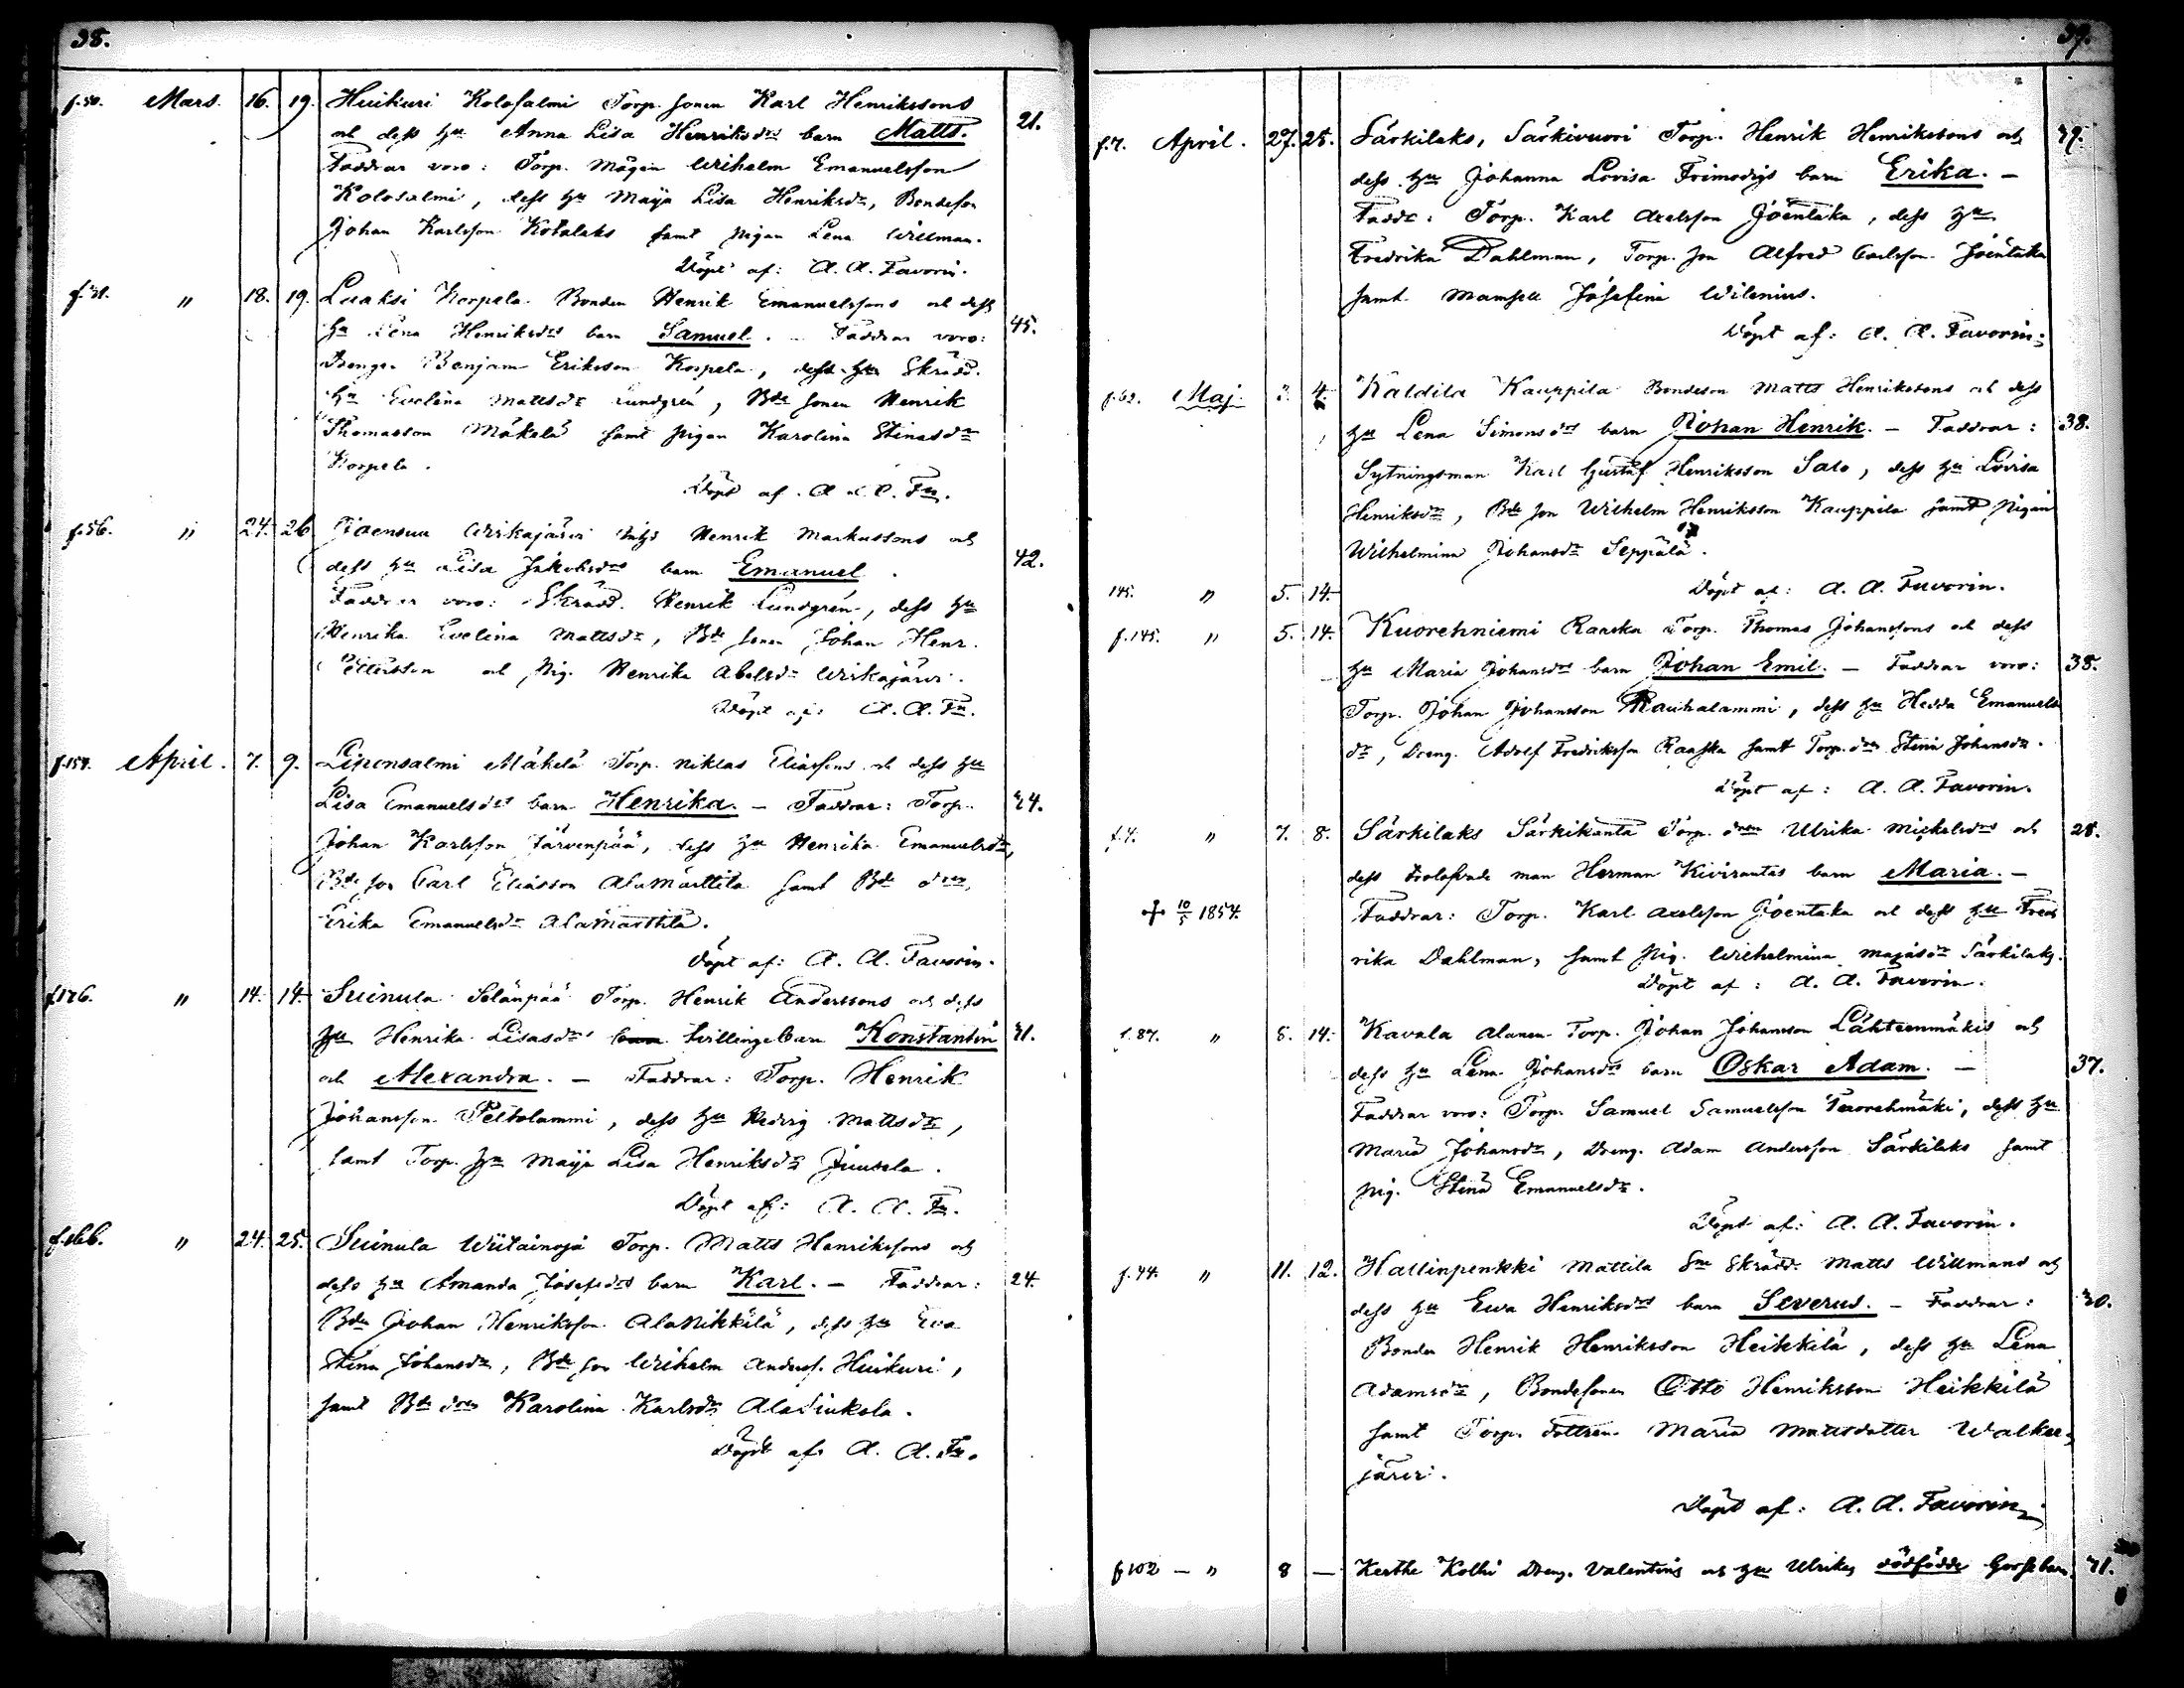 38.
f.50. Mars. 16. 19. Huikuri Kolosalmi Torp. sonen Karl Henrikssons
och dess hu Anna Lisa Henriksdrs barn Matts. 21.
Faddrar voro: Torp. mågen Wilhelm Emanuelsson
Kolosalmi, dess hu Maija Lisa Henriksdr, Bondeson
Johan Karlsson Kotalaks samt pigan Lena Willman.
Döpt af: A. A. Favorin.
f.31. " 18. 19. Laaksi Korpela Bonden Henrik Emanuelssons och dess
hu Lena Henriksdrs barn Samuel. – Faddrar voro: 45.
Drengen Benjam Eriksson Korpela, dess hu Skrädd.
hu Evelina Mattsdr Lundgrén, Bde sonen Henrik
Thomasson Mäkelä samt pigan Karolina Stinasdr
Korpela.
Döpt af. A. A. Fn.
f.56. " 24. 26 Joensuu Wirkajärvi Henrik Markussons och
dess hu Lisa Jakobsdrs barn Emanuel. 42.
Faddrar voro: Skrädd. Henrik Lundgrén, dess hu
Henrika Evelina Mattsdr, Bde sonen Johan Henr.
Pettersson och Pig. Henrika Abelsdr Wirkajärvi.
Döpt af: A. A. Fn.
f.157. April. 7. 9. Liponsalmi Mäkelä Torp. Niklas Eliassons och dess hu
Lisa Emanuelsdrs barn Henrika. – Faddrar: Torp. 34.
Johan Karlsson Järvenpää, dess hu Henrika Emanuelsdr,
Bde son Carl Eliasson Alamarttila samt Bde dren
Erika Emanuelsdr Alamarttila.
Döpt af: A. A. Favorin.
f.176. " 14. 14. Suinula Selänpää Torp. Henrik Anderssons och dess
hu Henrika Lisasdrs barn tvillingebarn Konstantin 31.
och Alexandra. – Faddrar: Torp. Henrik
Johansson Peltolammi, dess hu Hedvig Mattsdr,
samt Torp. hu Maija Lisa Henriksdr Juusela.
Döpt af: A. A. Fn.
f.166. " 24. 25. Suinula Wiitainoja Torp. Matts Henrikssons och
dess hu Amanda Josefsdrs barn Karl. – Faddrar: 24.
Bdn Johan Henriksson Alanikkilä, dess hu Eva
Stina Johansdr, Bde son Wilhelm Anderss. Huikuri,
samt Bde dren Karolina Karlsdr Alasinkola.
Döpt af. A. A. Fn.
39.
f.7. April. 27. 28. Särkilaks, Särkivuori Torp. Henrik Henrikssons och 39.
dess hu Johanna Lovisa Frimodigs barn Erika. –
Faddr: Torp. Karl Axelsson Joentaka, dess hu
Fredrika Dahlman, Torp. son Alfred Carlsson Joentaka
samt Mamsell Josefina Wilenius.
Döpt af: A. A. Favorin.
f.62. Maj. 3. 4. Kaldila Kauppila Bondeson Matts Henrikssons och dess
hu Lena Simonsdrs barn Johan Henrik. – Faddrar: 38.
Sytningsman Karl Gustaf Henriksson Salo, dess hu Lovisa
Henriksdr, Bde son Wilhelm Henriksson Kauppila samt Pigan
Wilhelmina Johansdr Seppälä.
145. " 5. 14. Döpt af: A. A. Favorin.
f.145. " 5. 14. Kuorehniemi Ranska Torp. Thomas Johanssons och dess
hu Maria Johansdrs barn Johan Emil. – Faddrar voro: 38.
Torp. Johan Johansson Rauhalammi, dess hu Hedda Emanuels
dr, Dreng. Adolf Fredriksson Raaska samt Torp. dren Stina Johansdr.
Döpt af: A. A. Favorin.
f.4. " 7. 8. Särkilaks Särkikanta Torp. dren Ulrika Mickelsdrs och 28.
dess trolofvade man Herman Kivirantas barn Maria. –
+ 10/5 1854. Faddrar: Torp. Karl Axelsson Joentaka och dess hu Fred
rika Dahlman, samt Pig. Wilhelmina Majasdr Särkilaks.
Döpt af: A. A. Favorin.
f.87. " 8. 14. Kavala Alanen Torp. Johan Johansson Lähteenmäkis och
dess hu Lena Johansdrs barn Oskar Adam. – 37.
Faddrar voro: Torp. Samuel Samuelsson Tuorehmäki, dess hu
Maria Johansdr, Dreng. Adam Andersson Särkilaks samt
pig. Stina Emanuelsdr.
Döpt af: A. A. Favorin.
f.44. " 11. 12. Hallinpenkki Mattila Skrädd. Matts Willmans och
dess hu Ewa Henriksdrs barn Severus. – Faddrar: 30.
Bonden Henrik Henriksson Heikkilä, dess hu Lena
Adamsdr, Bondesonen Otto Henriksson Heikkilä
samt Torp. dottren Maria Mattsdotter Walkee-
järvi.
Döpt af: A. A. Favorin
f 102 – " 8 – Kerthe Kolhi Dreng. Valentins och hu Ulrikas dödfödde Gossebarn 31.